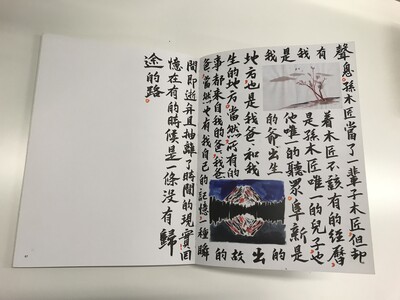 聲息孫木匠當了一輩子木匠但却
有着木匠不該有的經曆
我是孫木匠唯一的兒子也
是他唯一的聽眾阜新是
我的爷出生的
地方也是我爸和我出
生的地方當然所有的故
事都來自我的爸我爸的
爸當然也有我自己的記憶一種瞬
間即逝并且抽離了時間的現實回
憶在有的時候是一條没有歸
途的路